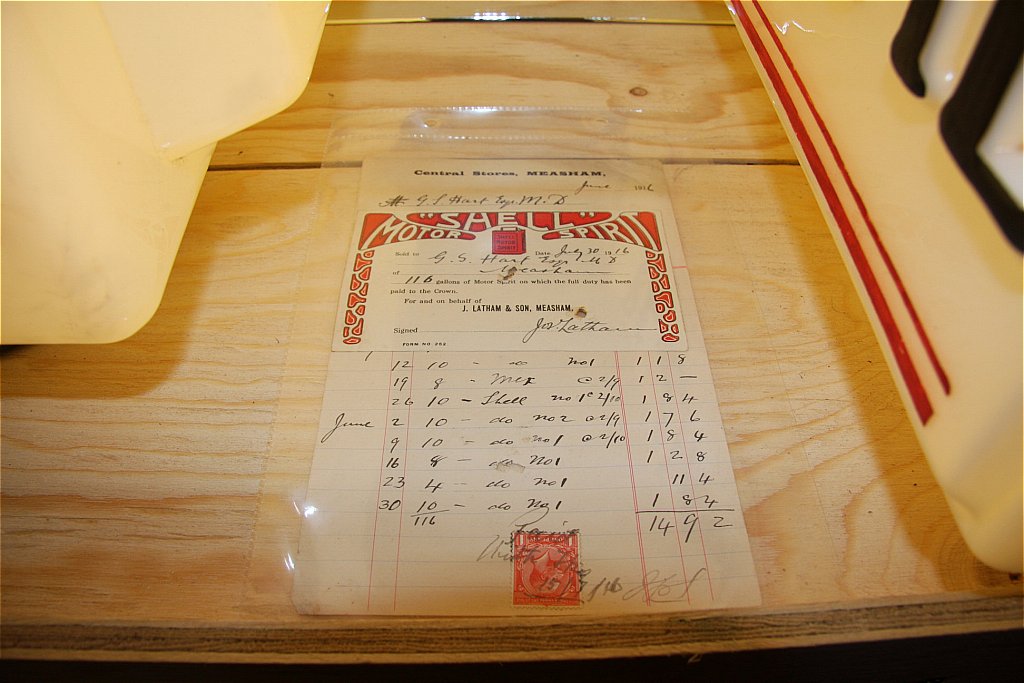 Central Stores, MEASHAM,
June 1916
G. S. Hart Esq. M.D
"SHELL"
MOTOR SPIRIT
SHELL
MOTOR
SPIRIT
Sold to G. S. Hart Esq. M D Date July 30 1916
of Measham
116 gallons of Motor Spirit on which the full duty has been
paid to the Crown.
For and on behalf of
J. LATHAM & SON, MEASHAM,
Signed Jos Latham
FORM NO 262
12 10 - do No1 1 1 8
19 8 - Mex @ 2/9 1 2 -
26 10 - Shell no 1 @ 2/10 1 8 4
June 2 10 - do no 2 @ 2/9 1 7 6
9 10 - do no 1 @ 2/10 1 8 4
16 8 - do No1 1 2 8
23 4 - do no1 11 4
30 10 - do No1 1 8 4
116 14 9 2